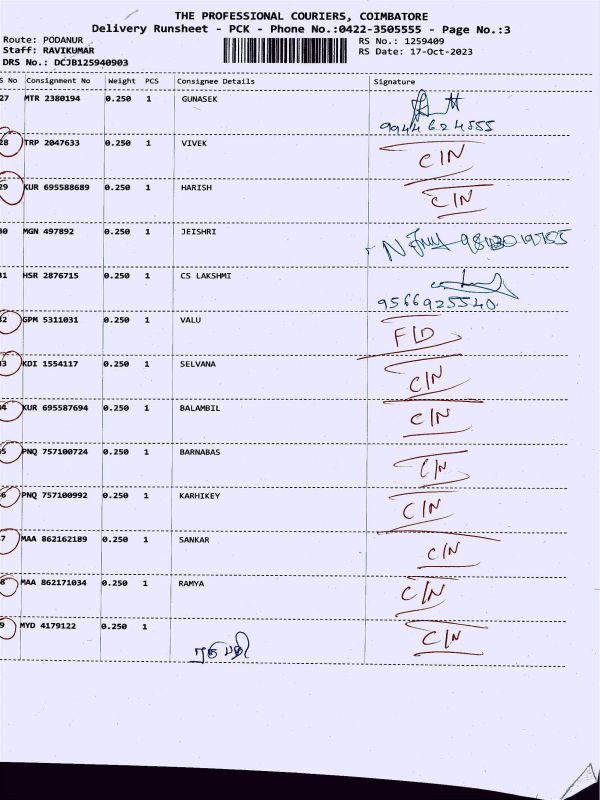 THE PROFESSIONAL COURIERS, COIMBATORE
Delivery Runsheet - PCK - Phone No.:0422-3505555 - Page No.:3
Route: PODANUR RS No.: 1259409
Staff: RAVIKUMAR RS Date: 17-Oct-2023
DRS No.: DCJB125940903
S No Consignment No Weight PCS Consignee Details Signature
27 MTR 2380194 0.250 1 GUNASEK
9944624555
28 TRP 2047633 0.250 1 VIVEK C/N
29 KUR 695588689 0.250 1 HARISH C/N
30 MGN 497892 0.250 1 JEISHRI
31 HSR 2876715 0.250 1 CS LAKSHMI
9566925540
32 GPM 5311031 0.250 1 VALU F/D
33 KDI 1554117 0.250 1 SELVANA C/N
34 KUR 695587694 0.250 1 BALAMBIL C/N
35 PNQ 757100724 0.250 1 BARNABAS C/N
36 PNQ 757100992 0.250 1 KARHIKEY C/N
37 MAA 862162189 0.250 1 SANKAR C/N
38 MAA 862171034 0.250 1 RAMYA C/N
39 MYD 4179122 0.250 1 C/N